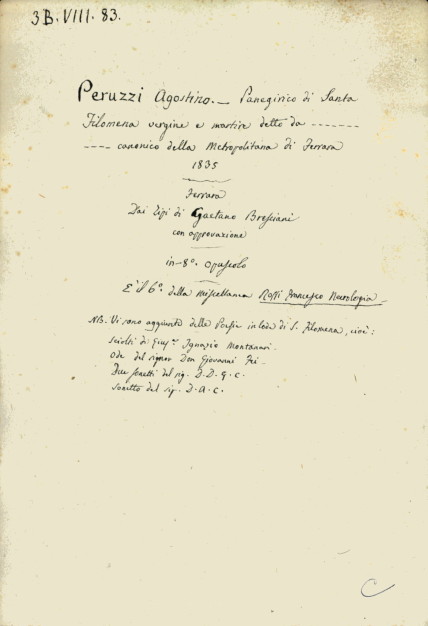 3B.VIII.83.
Peruzzi Agostino. — Panegirico di Santa
Filomena vergine e martire detto da -------
---- canonico della Metropolitana di Ferrara
1835
Ferrara
Dai Tipi di Gaetano Bresciani
con approvazione
in-8°. opuscolo
È il 6°. della miscellanea Rossi Francesco Necrologia —
NB. Vi sono aggiunte delle Poesie in lode di S. Filomena, cioè:
Sciolti di Gius.e Ignazio Montanari.
Ode del signor Don Giovanni Fei —
Due sonetti del sig. D. D. G. C.
Sonetto del sig. D. A. C.
C